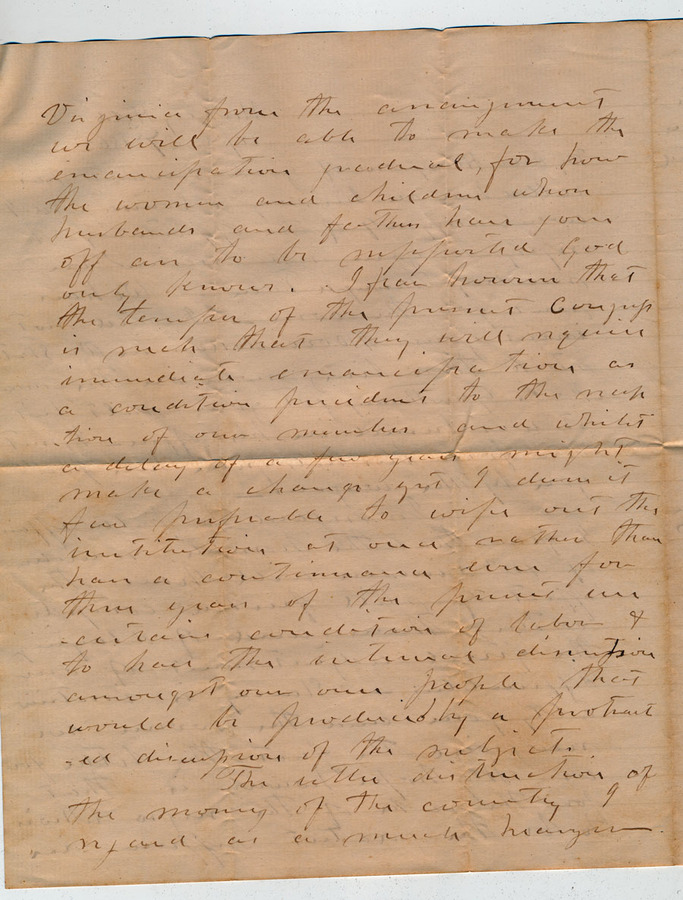 Virginia from the arrangement
we will be able to make the
emancipation gradual, for how
the women and children whose
husbands and fathers have gone
off are to be supported God
only knows. I fear however that
the temper of the present Congress
is such that they will require
immediate emancipation as
a condition precedent to the recep
-tion of our member and whilst
a delay of a few years might
make a change yet I deem it
far preferable to wipe out the
institution at once rather than
have a continuance even for
three years of the present un
-certain condition of labor &
to have the internal dissension
amongst our own people that
would be produced by a protract
-ed discussion of the subject.
The utter destruction of
the money of the country I
regard as a much heavier